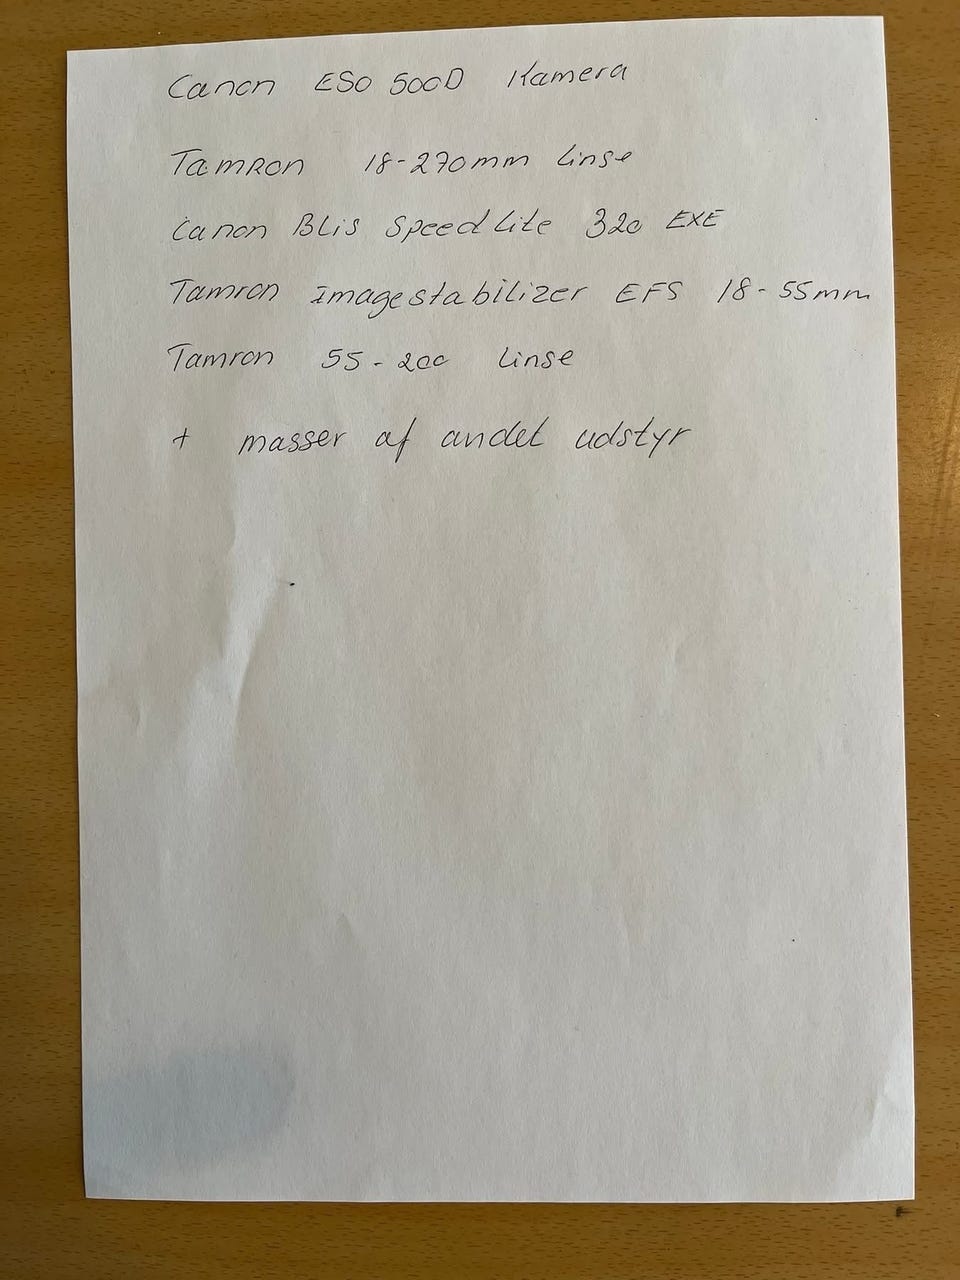 Canon ESO 500D Kamera
Tamron 18-270mm linse
Canon Blis Speedlite 320 EXE
Tamron Imagestabilizer EFS 18-55mm
Tamron 55-200 linse
+ masser af andet udstyr